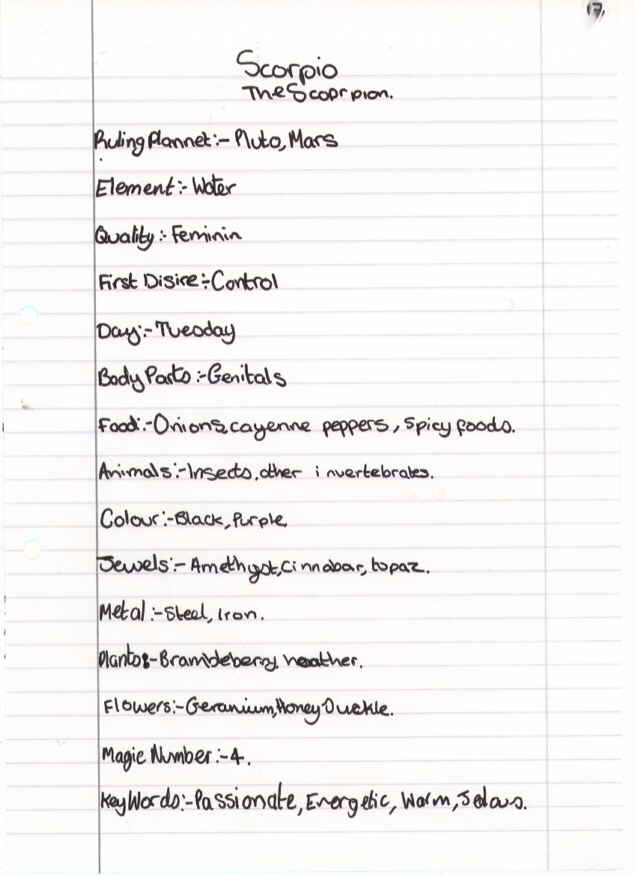 17,
Scorpio
The Scorpion.
Ruling Plannet:- Pluto, Mars
Element:- Water
Quality:- Feminin
First Disire:- Control
Day:- Tuesday
Body Parts:- Genitals
Food:- Onions, cayenne peppers, spicy foods.
Animals:- Insects, other invertebrates.
Colour:- Black, Purple
Jewels:- Amethyst, Cinnabar, topaz.
Metal:- Steel, Iron.
Plants:- heather.
Flowers:- Geranium, Honey Suckle.
Magic Number:- 4.
Key Words:- Passionate, Energetic, Warm, Jelous.